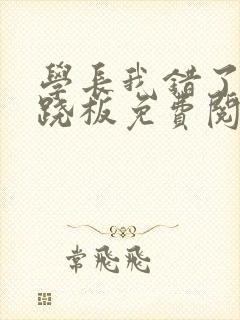 學長我錯了
跷板免費閱
常飛飛